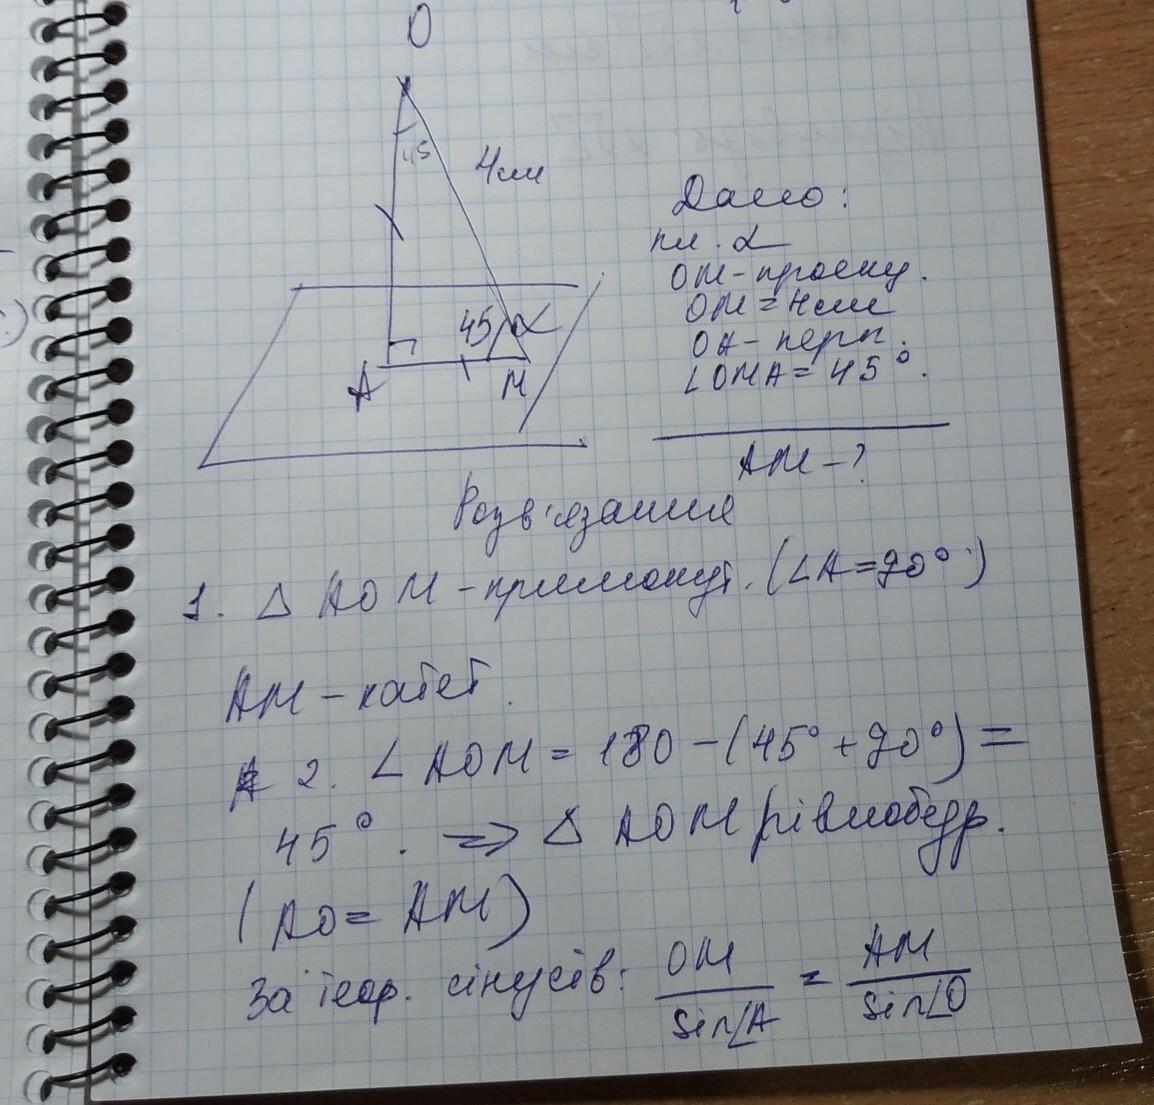 O
45
4см
45 α
A
M
Дано:
пл. α
OM-проекц.
OM = 4см
OA- перп.
∠OMA = 45°.
AM - ?
Розв'язання
1. △ AOM - прямокут. (∠A=90°)
AM - катет.
2. ∠AOM = 180 - (45° + 90°) =
45°. => △ AOM рівнобедр.
(AO = AM)
За теор. сінусів: OM/Sin∠A = AM/Sin∠O